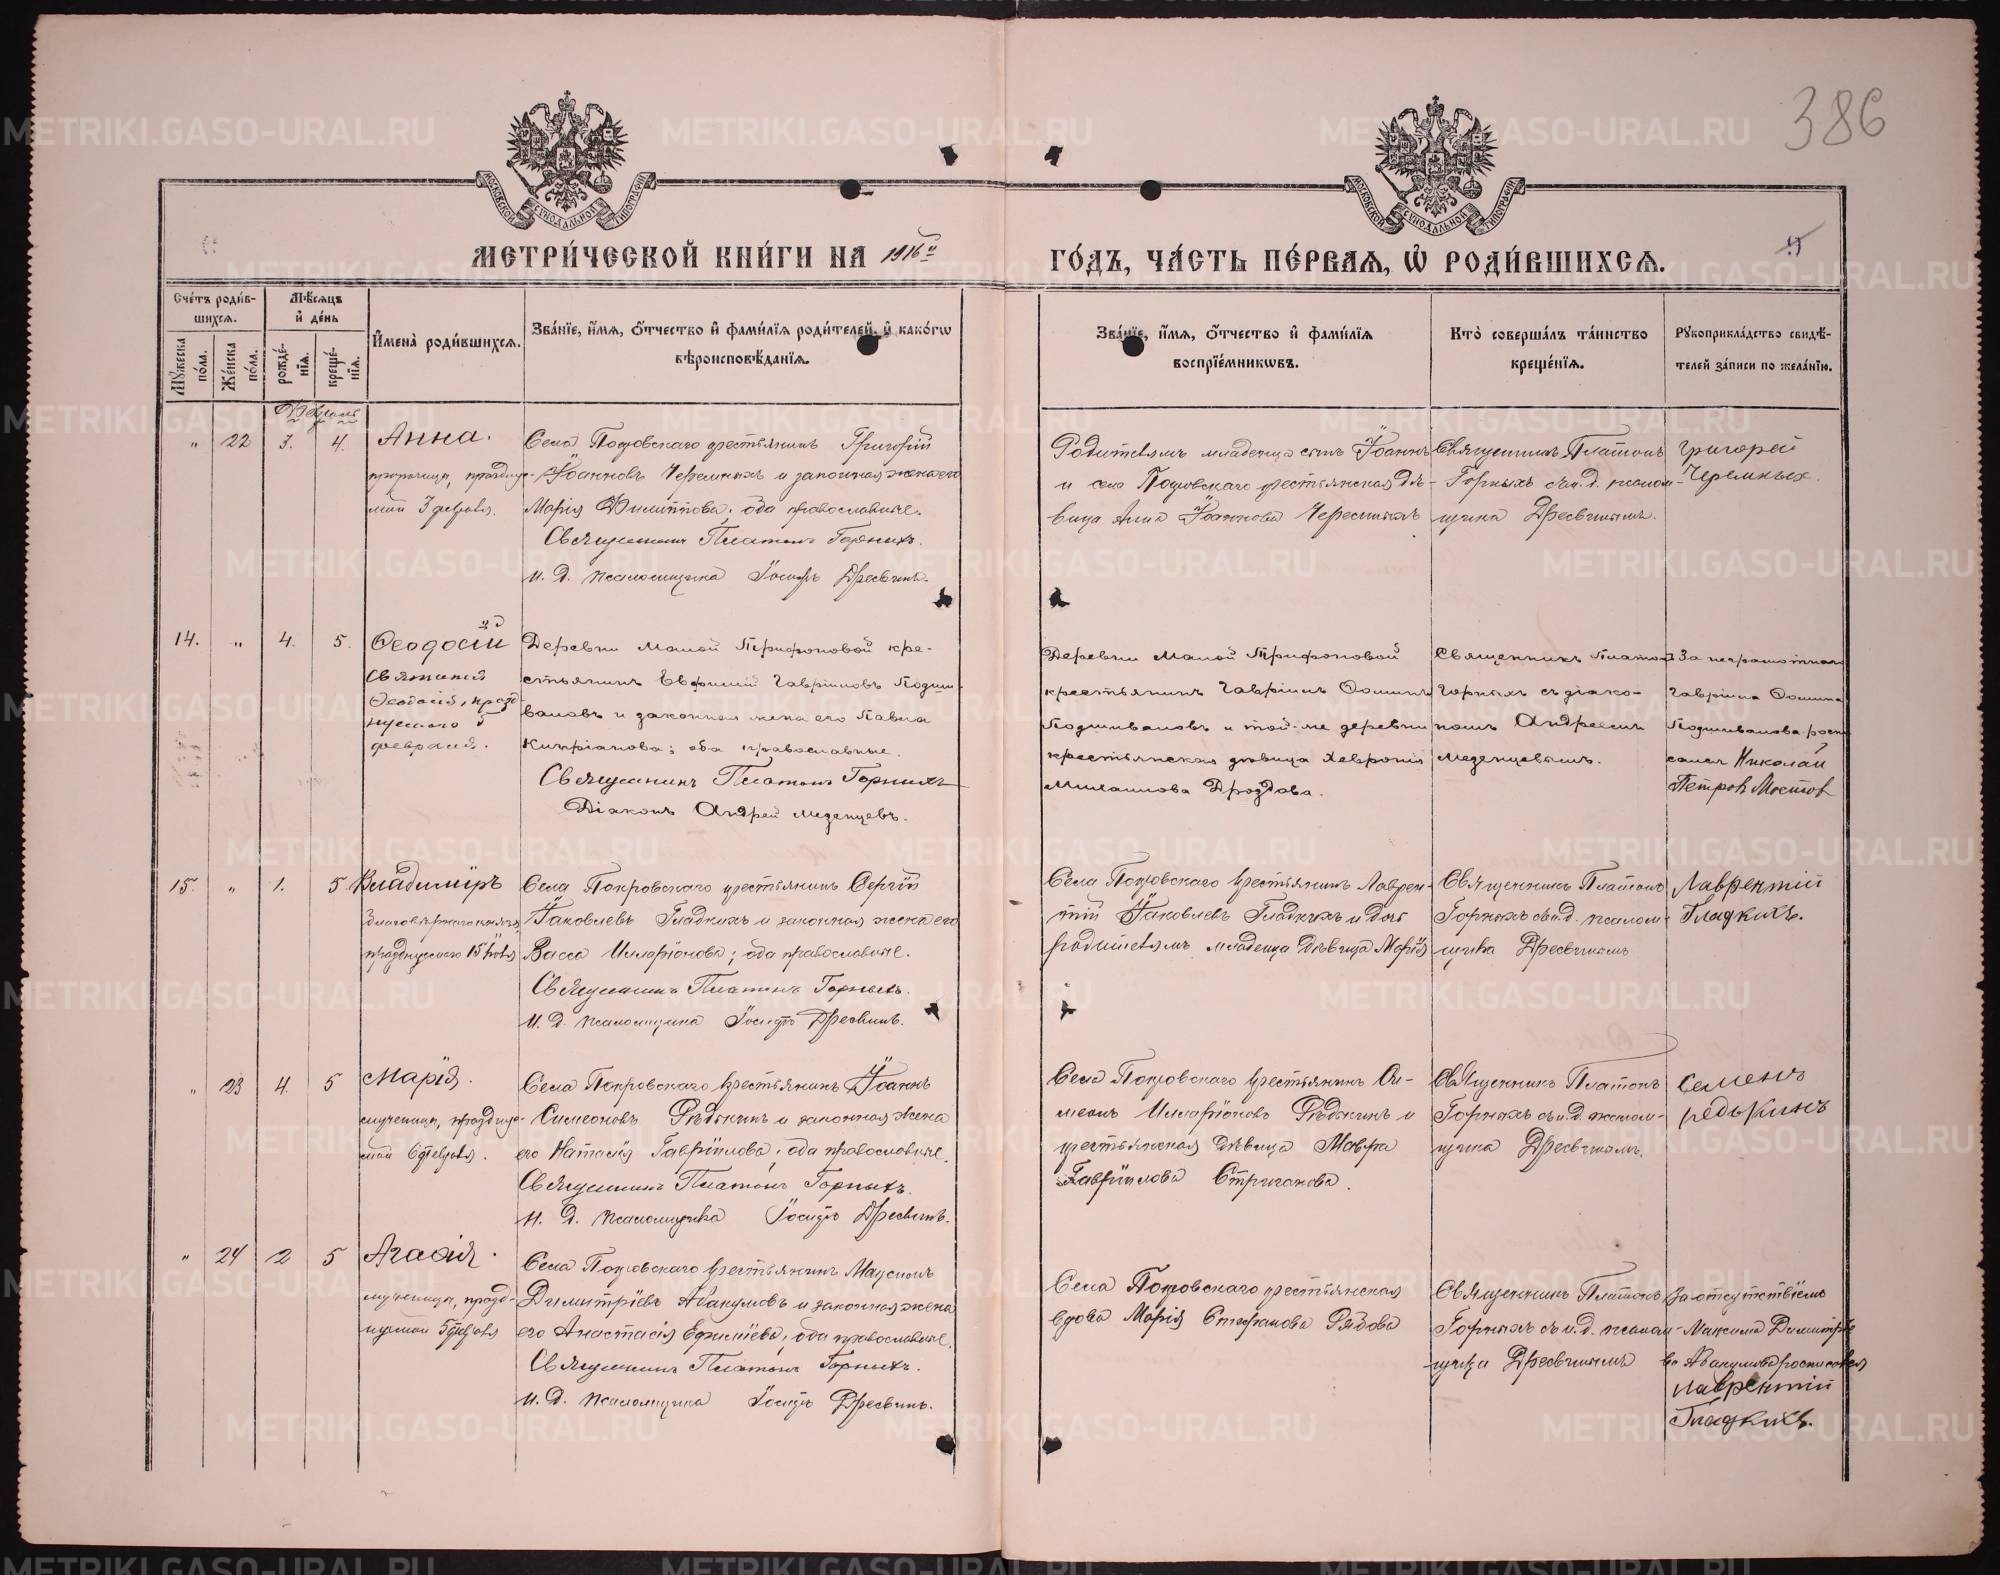 386
МОСКОВСКОЙ СѴНОДАЛЬНОЙ ТИПОГРАФІИ
МОСКОВСКОЙ СѴНОДАЛЬНОЙ ТИПОГРАФІИ
МЕТРИ́ЧЕСКОЙ КНИ́ГИ НА 1916й ГО́ДЪ, ЧА́СТЬ ПЕ́РВАЯ, Ѡ҆ РОДИ́ВШИХСЯ.
Сче́тъ роди́в-
шихся.
Мѣ́сяцъ
и҆ де́нь
Мꙋ́жеска по́ла.
Же́нска по́ла.
рожде́-
нїя.
креще́-
нїя.
И҆мена̀ роди́вшихся.
Зва́нїе, и҆́мя, ѻ҆́тчество и҆ фами́лїя роди́телей, и҆ како́гѡ
вѣроисповѣ́данїя.
Зва́нїе, и҆́мя, ѻ҆́тчество и҆ фами́лїя
воспрїе́мникѡвъ.
Кто̀ соверша́лъ та́инство
креще́нїя.
Рꙋкоприкла́дство свидѣ́-
телей за́писи по жела́нїю.
Февраль
" 22 3. 4. Анна.
пророчица, праздну-
мой 3 февраля.
Села Покровскаго крестьянинъ Григорій
Іоанновъ Черемныхъ и законная жена его
Марія Филиппова; оба православные.
Священникъ Платонъ Горныхъ.
И. Д. псаломщика Іосифъ Дресвинъ.
Родителямъ младенца сынъ Іоаннъ
и села Покровскаго крестьянская дѣ-
вица Анна Іоаннова Черемныхъ
Священникъ Платонъ
Горныхъ съ и.д. псалом-
щика Дресвинымъ.
Григорей
Черемныхъ.
14. " 4. 5. Феодосій
Святителя
Феодосія, празд
нуемаго 5
февраля.
Деревни Малой Трифоновой кре-
стьянинъ Евфимій Гавріиловъ Подши-
валовъ и законная жена его Павла
Кипріанова; оба православные.
Священникъ Платонъ Горныхъ
Діаконъ Андрей Меденцевъ.
Деревни Малой Трифоновой
крестьянинъ Гавріилъ Фоминъ
Подшиваловъ и той-же деревни
крестьянская дѣвица Хевронія
Михаилова Дроздова.
Священникъ Платонъ
Горныхъ съ діако-
номъ Андреемъ
Меденцевымъ.
За неграмотного
Гавріила Фомина
Подшивалова роспи
сался Николай
Петровъ Мостов
15. " 1. 5. Владиміръ
благовѣрнаго князя,
празднуемаго 15 іюля
Села Покровскаго крестьянинъ Сергій
Іаковлевъ Гладкихъ и законная жена его
Васса Илларіонова; оба православные.
Священникъ Платонъ Горныхъ.
И. Д. псаломщика Іосифъ Дресвинъ.
Села Покровскаго крестьянинъ Лаврен-
тій Іаковлевъ Гладкихъ и дочь
родителямъ младенца дѣвица Марія
Священникъ Платонъ
Горныхъ съ и.д. псалом-
щика Дресвинымъ
Лаврентій
Гладкихъ.
" 23 4. 5 Марія.
мученица, праздну-
мой 6 февраля.
Села Покровскаго крестьянинъ Іоаннъ
Симеоновъ Рѣдькинъ и законная жена
его Наталія Гавріилова; оба православные.
Священникъ Платонъ Горныхъ.
И. Д. псаломщика Іосифъ Дресвинъ.
Села Покровскаго крестьянинъ Си-
меонъ Илларіоновъ Рѣдькинъ и
крестьянская дѣвица Мавра
Гавріилова Стриганова.
Священникъ Платонъ
Горныхъ съ и.д. псалом-
щика Дресвинымъ.
Семенъ
Редькинъ
" 24 2 5 Агафія.
мученица, празд-
нуемой 5 февраля
Села Покровскаго крестьянинъ Максимъ
Димитріевъ Абакумовъ и законная жена
его Анастасія Ефимиева; оба православные.
Священникъ Платонъ Горныхъ.
И. Д. псаломщика Іосифъ Дресвинъ.
Села Покровскаго крестьянская
вдова Марія Стефанова Рябова
Священникъ Платонъ
Горныхъ съ и.д. псалом-
щика Дресвинымъ
За отсутствіемъ
Максима Димитріе
ва Абакумова росписался
Лаврентій
Гладкихъ.
METRIKI.GASO-URAL.RU